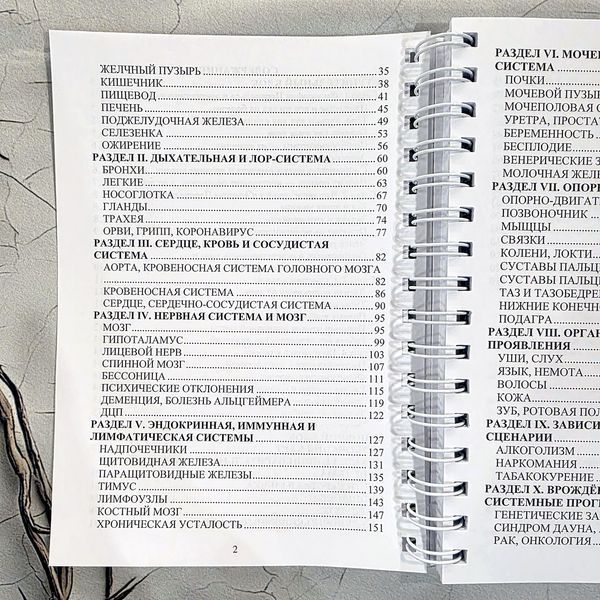 ЖЕЛЧНЫЙ ПУЗЫРЬ 35
КИШЕЧНИК 38
ПИЩЕВОД 41
ПЕЧЕНЬ 45
ПОДЖЕЛУДОЧНАЯ ЖЕЛЕЗА 49
СЕЛЕЗЕНКА 53
ОЖИРЕНИЕ 56
РАЗДЕЛ II. ДЫХАТЕЛЬНАЯ И ЛОР-СИСТЕМА 60
БРОНХИ 60
ЛЕГКИЕ 63
НОСОГЛОТКА 67
ГЛАНДЫ 70
ТРАХЕЯ 74
ОРВИ, ГРИПП, КОРОНАВИРУС 77
РАЗДЕЛ III. СЕРДЦЕ, КРОВЬ И СОСУДИСТАЯ
СИСТЕМА 82
АОРТА, КРОВЕНОСНАЯ СИСТЕМА ГОЛОВНОГО МОЗГА
82
КРОВЕНОСНАЯ СИСТЕМА 86
СЕРДЦЕ, СЕРДЕЧНО-СОСУДИСТАЯ СИСТЕМА 90
РАЗДЕЛ IV. НЕРВНАЯ СИСТЕМА И МОЗГ 95
МОЗГ 95
ГИПОТАЛАМУС 99
ЛИЦЕВОЙ НЕРВ 103
СПИННОЙ МОЗГ 107
БЕССОНИЦА 111
ПСИХИЧЕСКИЕ ОТКЛОНЕНИЯ 115
ДЕМЕНЦИЯ, БОЛЕЗНЬ АЛЬЦГЕЙМЕРА 119
ДЦП 122
РАЗДЕЛ V. ЭНДОКРИННАЯ, ИММУННАЯ И
ЛИМФАТИЧЕСКАЯ СИСТЕМЫ 127
НАДПОЧЕЧНИКИ 127
ЩИТОВИДНАЯ ЖЕЛЕЗА 131
ПАРАЩИТОВИДНЫЕ ЖЕЛЕЗЫ 135
ТИМУС 139
ЛИМФОУЗЛЫ 143
КОСТНЫЙ МОЗГ 147
ХРОНИЧЕСКАЯ УСТАЛОСТЬ 151
2
РАЗДЕЛ VI. МОЧЕ
СИСТЕМА
ПОЧКИ
МОЧЕВОЙ ПУЗЫР
МОЧЕПОЛОВАЯ С
УРЕТРА, ПРОСТАТ
БЕРЕМЕННОСТЬ
БЕСПЛОДИЕ
ВЕНЕРИЧЕСКИЕ З
МОЛОЧНАЯ ЖЕЛЕ
РАЗДЕЛ VII. ОПОР
ОПОРНО-ДВИГАТ
ПОЗВОНОЧНИК
МЫЩЦЫ
СВЯЗКИ
КОЛЕНИ, ЛОКТИ
СУСТАВЫ ПАЛЬЦ
СУСТАВЫ ПАЛЬЦ
ТАЗ И ТАЗОБЕДРЕ
НИЖНИЕ КОНЕЧНО
ПОДАГРА
РАЗДЕЛ VIII. ОРГАН
ПРОЯВЛЕНИЯ
УШИ, СЛУХ
ЯЗЫК, НЕМОТА
ВОЛОСЫ
КОЖА
ЗУБ, РОТОВАЯ ПОЛ
РАЗДЕЛ IX. ЗАВИСИ
СЦЕНАРИИ
АЛКОГОЛИЗМ
НАРКОМАНИЯ
ТАБАКОКУРЕНИЕ
РАЗДЕЛ X. ВРОЖДЁН
СИСТЕМНЫЕ ПРОГР
ГЕНЕТИЧЕСКИЕ ЗА
СИНДРОМ ДАУНА, А
РАК, ОНКОЛОГИЯ